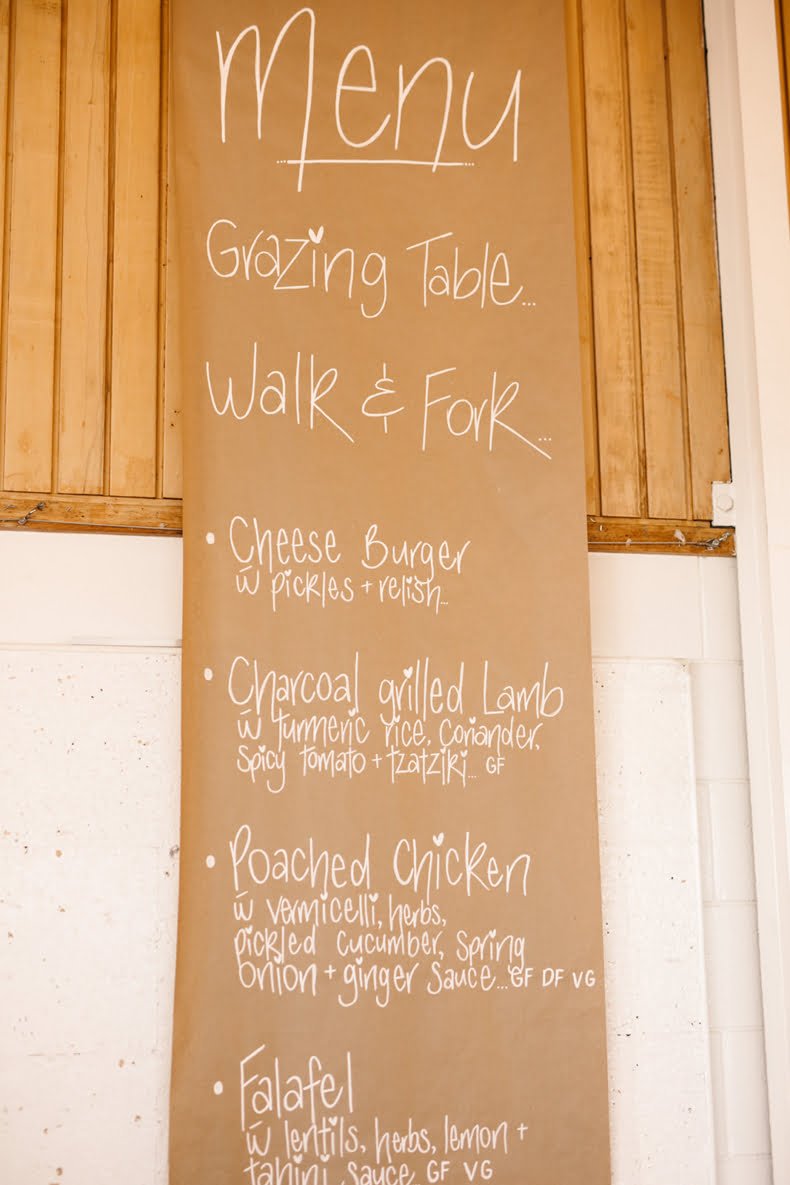 Menu
Grazing Table...
Walk & Fork...
• Cheese Burger
w pickles + relish...
• Charcoal grilled Lamb
w turmeric rice, coriander,
spicy tomato + tzatziki... GF
• Poached Chicken
w vermicelli, herbs,
pickled cucumber, spring
onion + ginger sauce... GF DF VG
• Falafel
w lentils, herbs, lemon +
tahini sauce GF VG